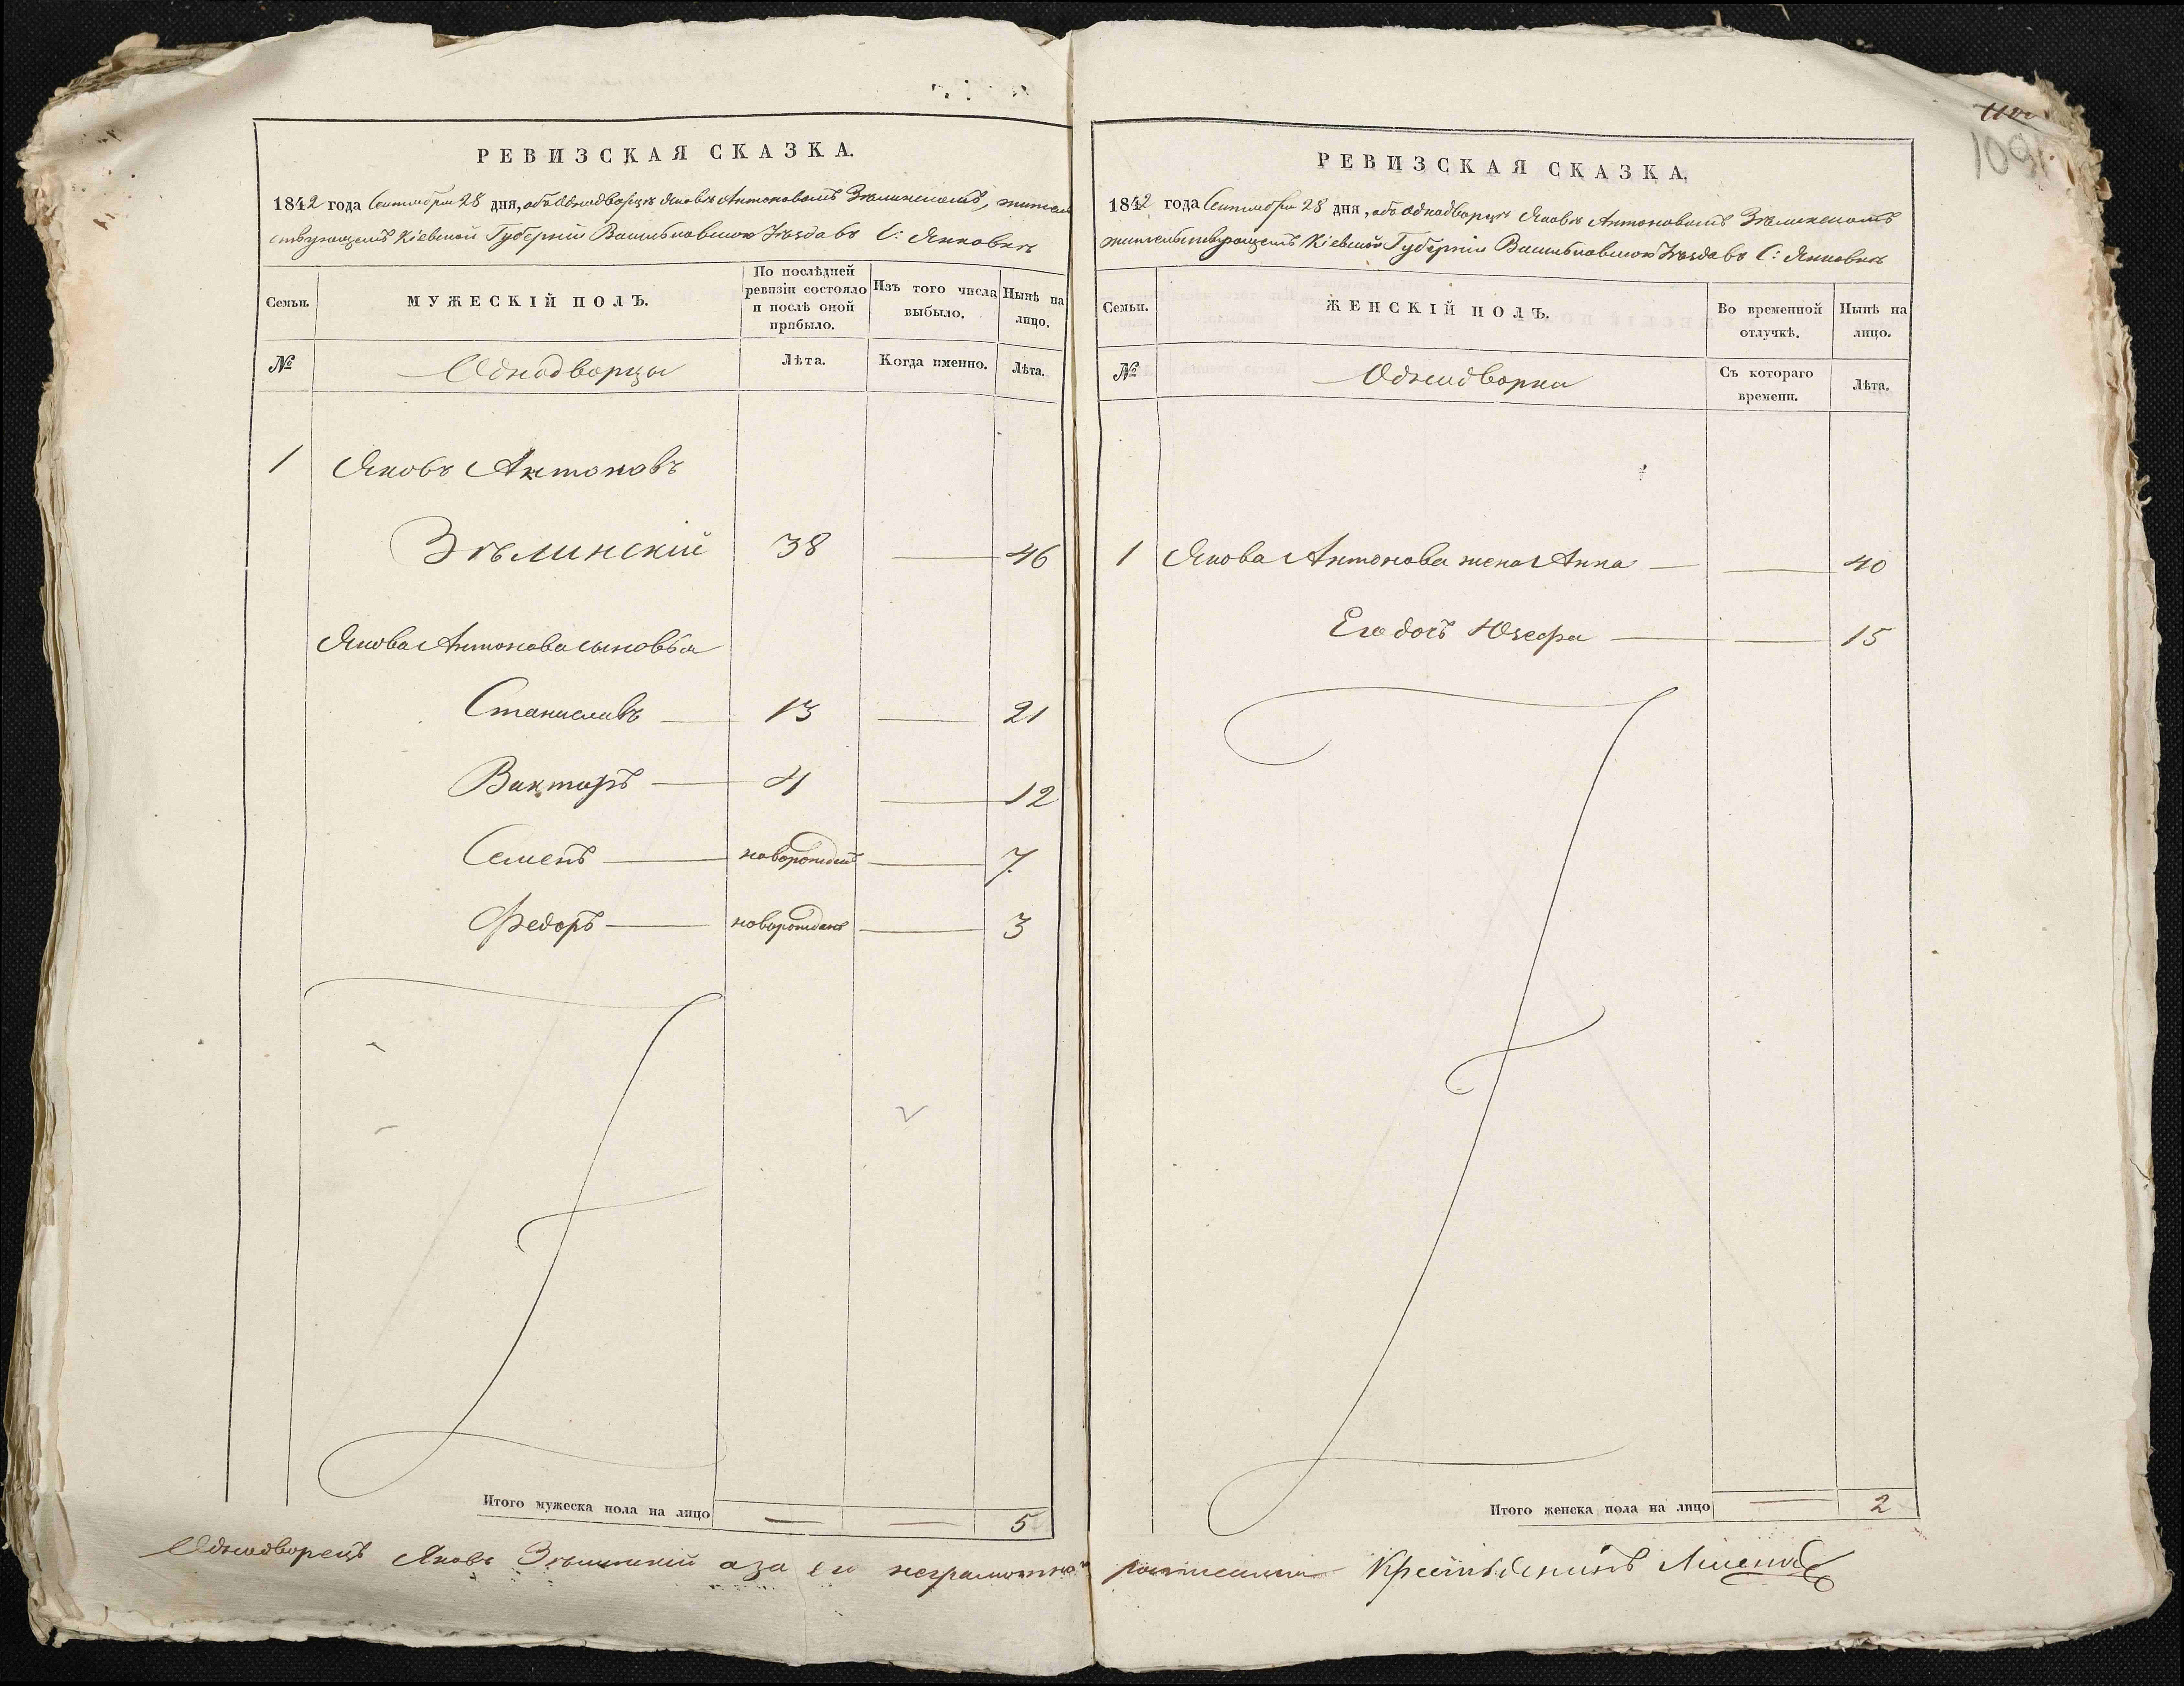 РЕВИЗСКАЯ СКАЗКА.
1842 года Сентября 28 дня, объ Однодворцѣ Яковѣ Антоновомъ Зѣлинскомъ, житель
ствующемъ Кіевской Губерніи Васильковскаго Уѣзда въ С: Янковкѣ
Семьи.
МУЖЕСКІЙ ПОЛЪ.
По послѣдней
ревизіи состояло
и послѣ оной
прибыло.
Изъ того числа
выбыло.
Нынѣ на
лицо.
№
Однодворцы
Лѣта.
Когда именно.
Лѣта.
1 Яковъ Антоновъ
Зѣлинскій 38 — 46
Якова Антонова сыновья
Станиславъ — 13 — 21
Викторъ — 4 — 12
Семенъ — новорожден — 7
Федоръ — новорожден — 3
Итого мужеска пола на лицо — — 5
Однодворецъ Яковъ Зѣлинскій а за его неграмотно
110
109
РЕВИЗСКАЯ СКАЗКА.
1842 года Сентября 28 дня, объ Однодворцѣ Яковѣ Антоновомъ Зѣлинскомъ
жительствующемъ Кіевской Губерніи Васильковскаго Уѣзда въ С: Янковкѣ
Семьи.
ЖЕНСКІЙ ПОЛЪ.
Во временной
отлучкѣ.
Нынѣ на
лицо.
№
Однодворки
Съ котораго
времени.
Лѣта.
1 Якова Антонова жена Анна — — 40
Его дочь Юзефа — — 15
Итого женска пола на лицо — 2
росписался